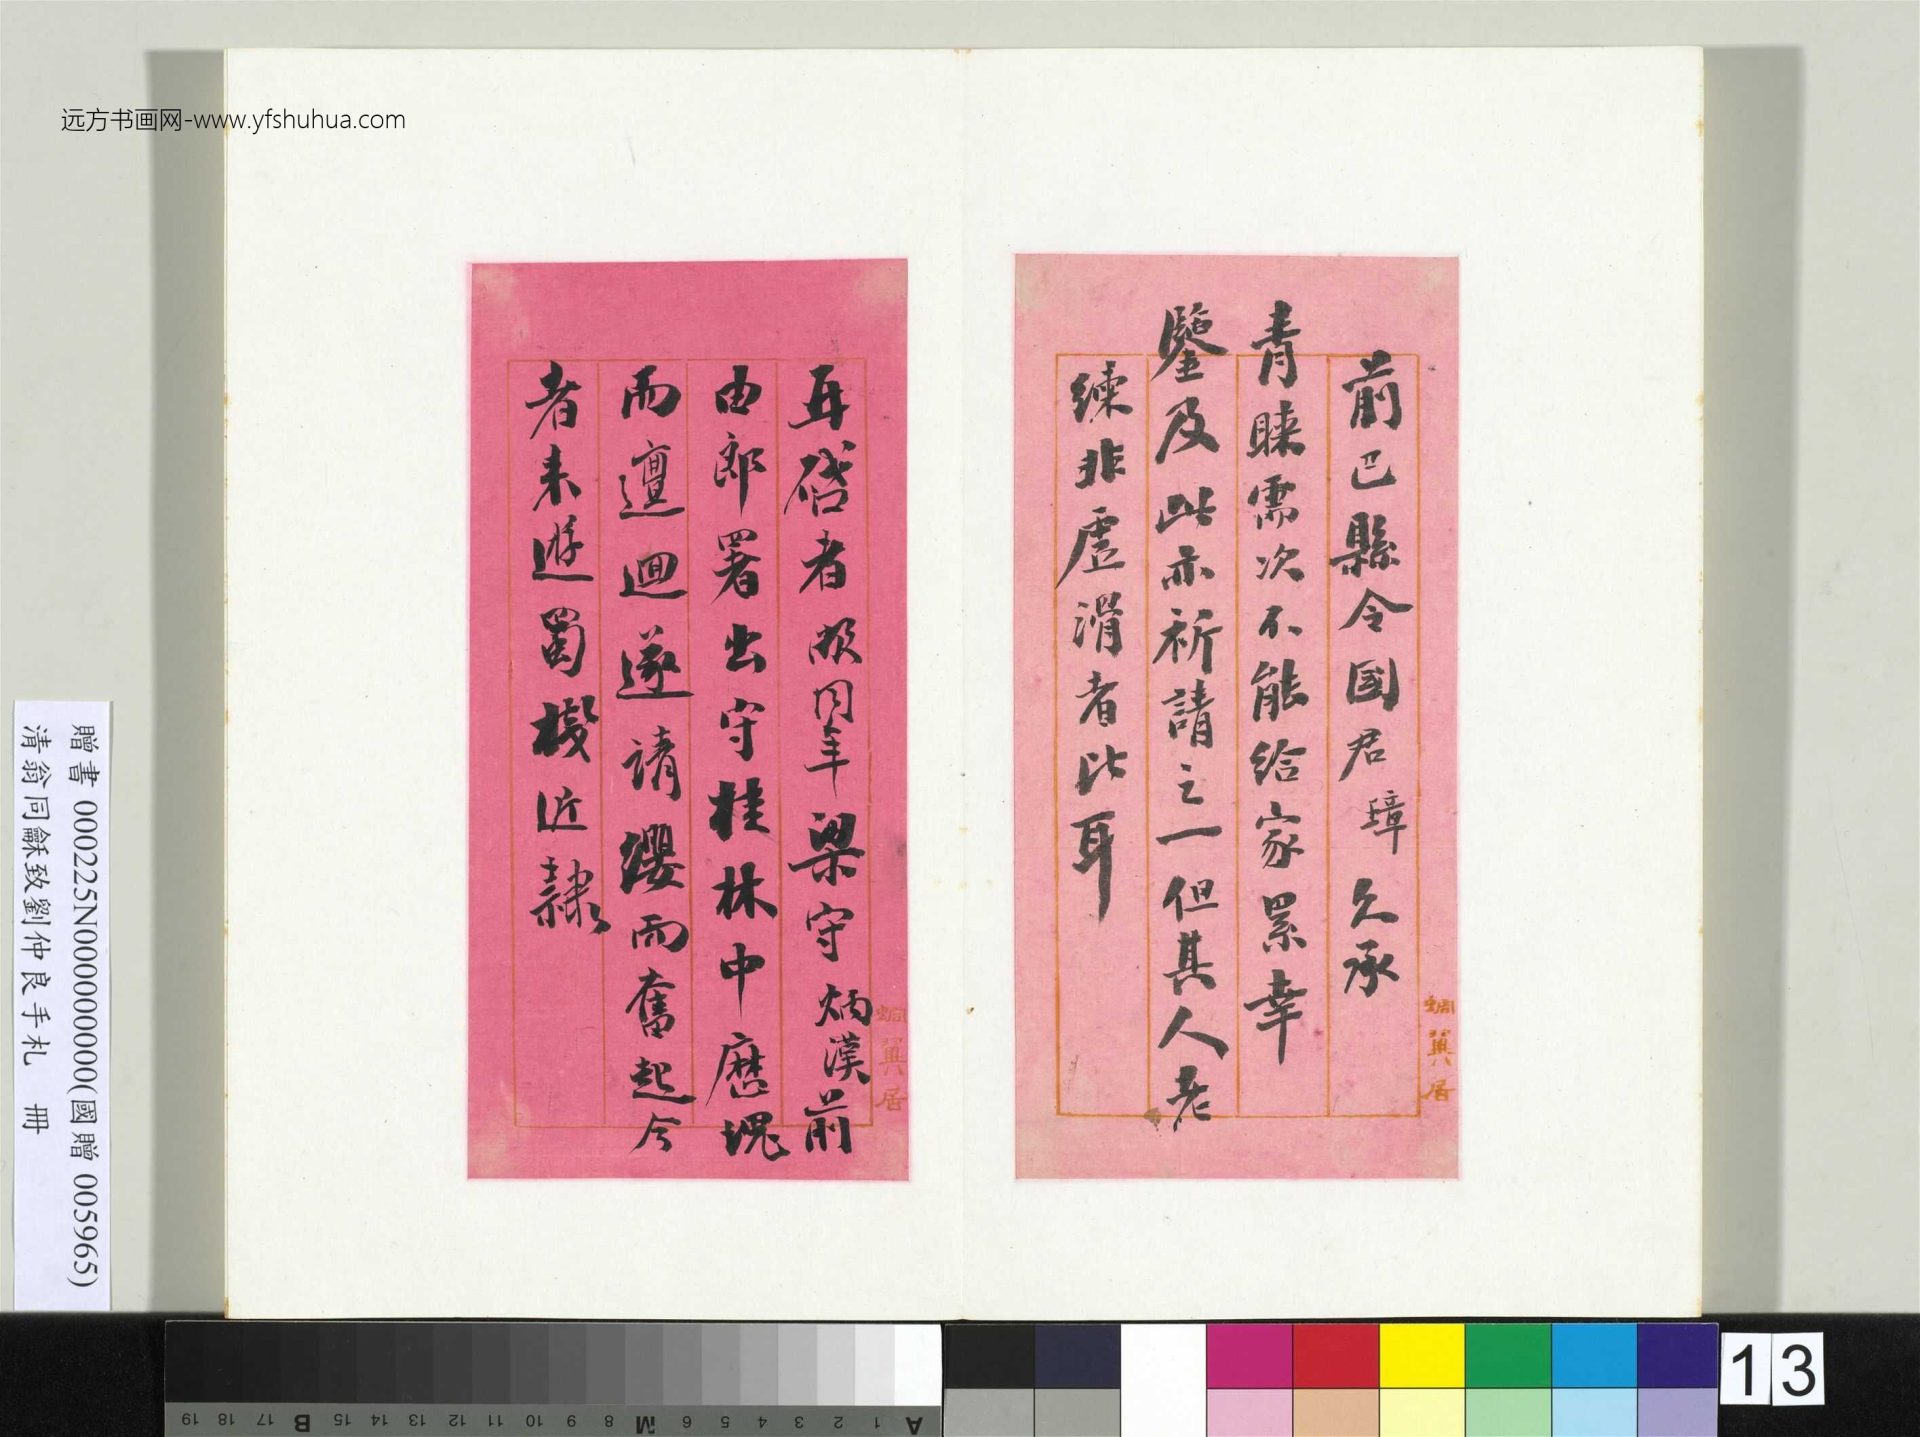 远方书画网-www.yfshuhua.com
前巴縣令國君璋久承
青睞需次不能給家累幸
鑒及此亦祈請之一但其人老
練非虛滑者比耳
蜩翼居
再啓者敝同年梁守炳漢前
由郎署出守桂林中歷
而邅迴遂請纓而奮起今
者來遊蜀棧近隸
蜩翼居
贈書 000225N000000000(國贈 005965)
清翁同龢致劉仲良手札 冊
13
A 1 2 3 4 5 6 M 8 9 10 11 12 13 14 15 B 17 18 19